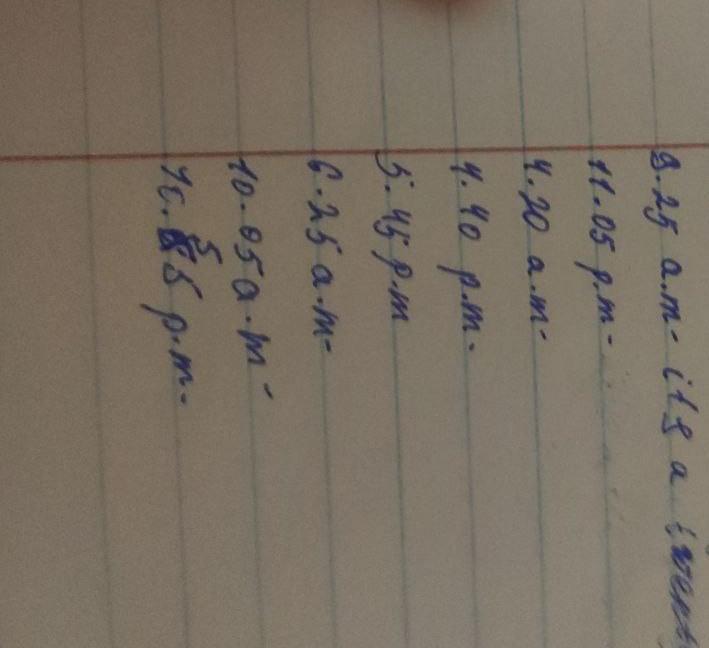 9.25 a.m- it's a twenty
11.05 p.m-
4.20 a.m-
4.40 p.m-
5.45 p.m
6.25 a.m-
10.05 a.m-
55 p.m-